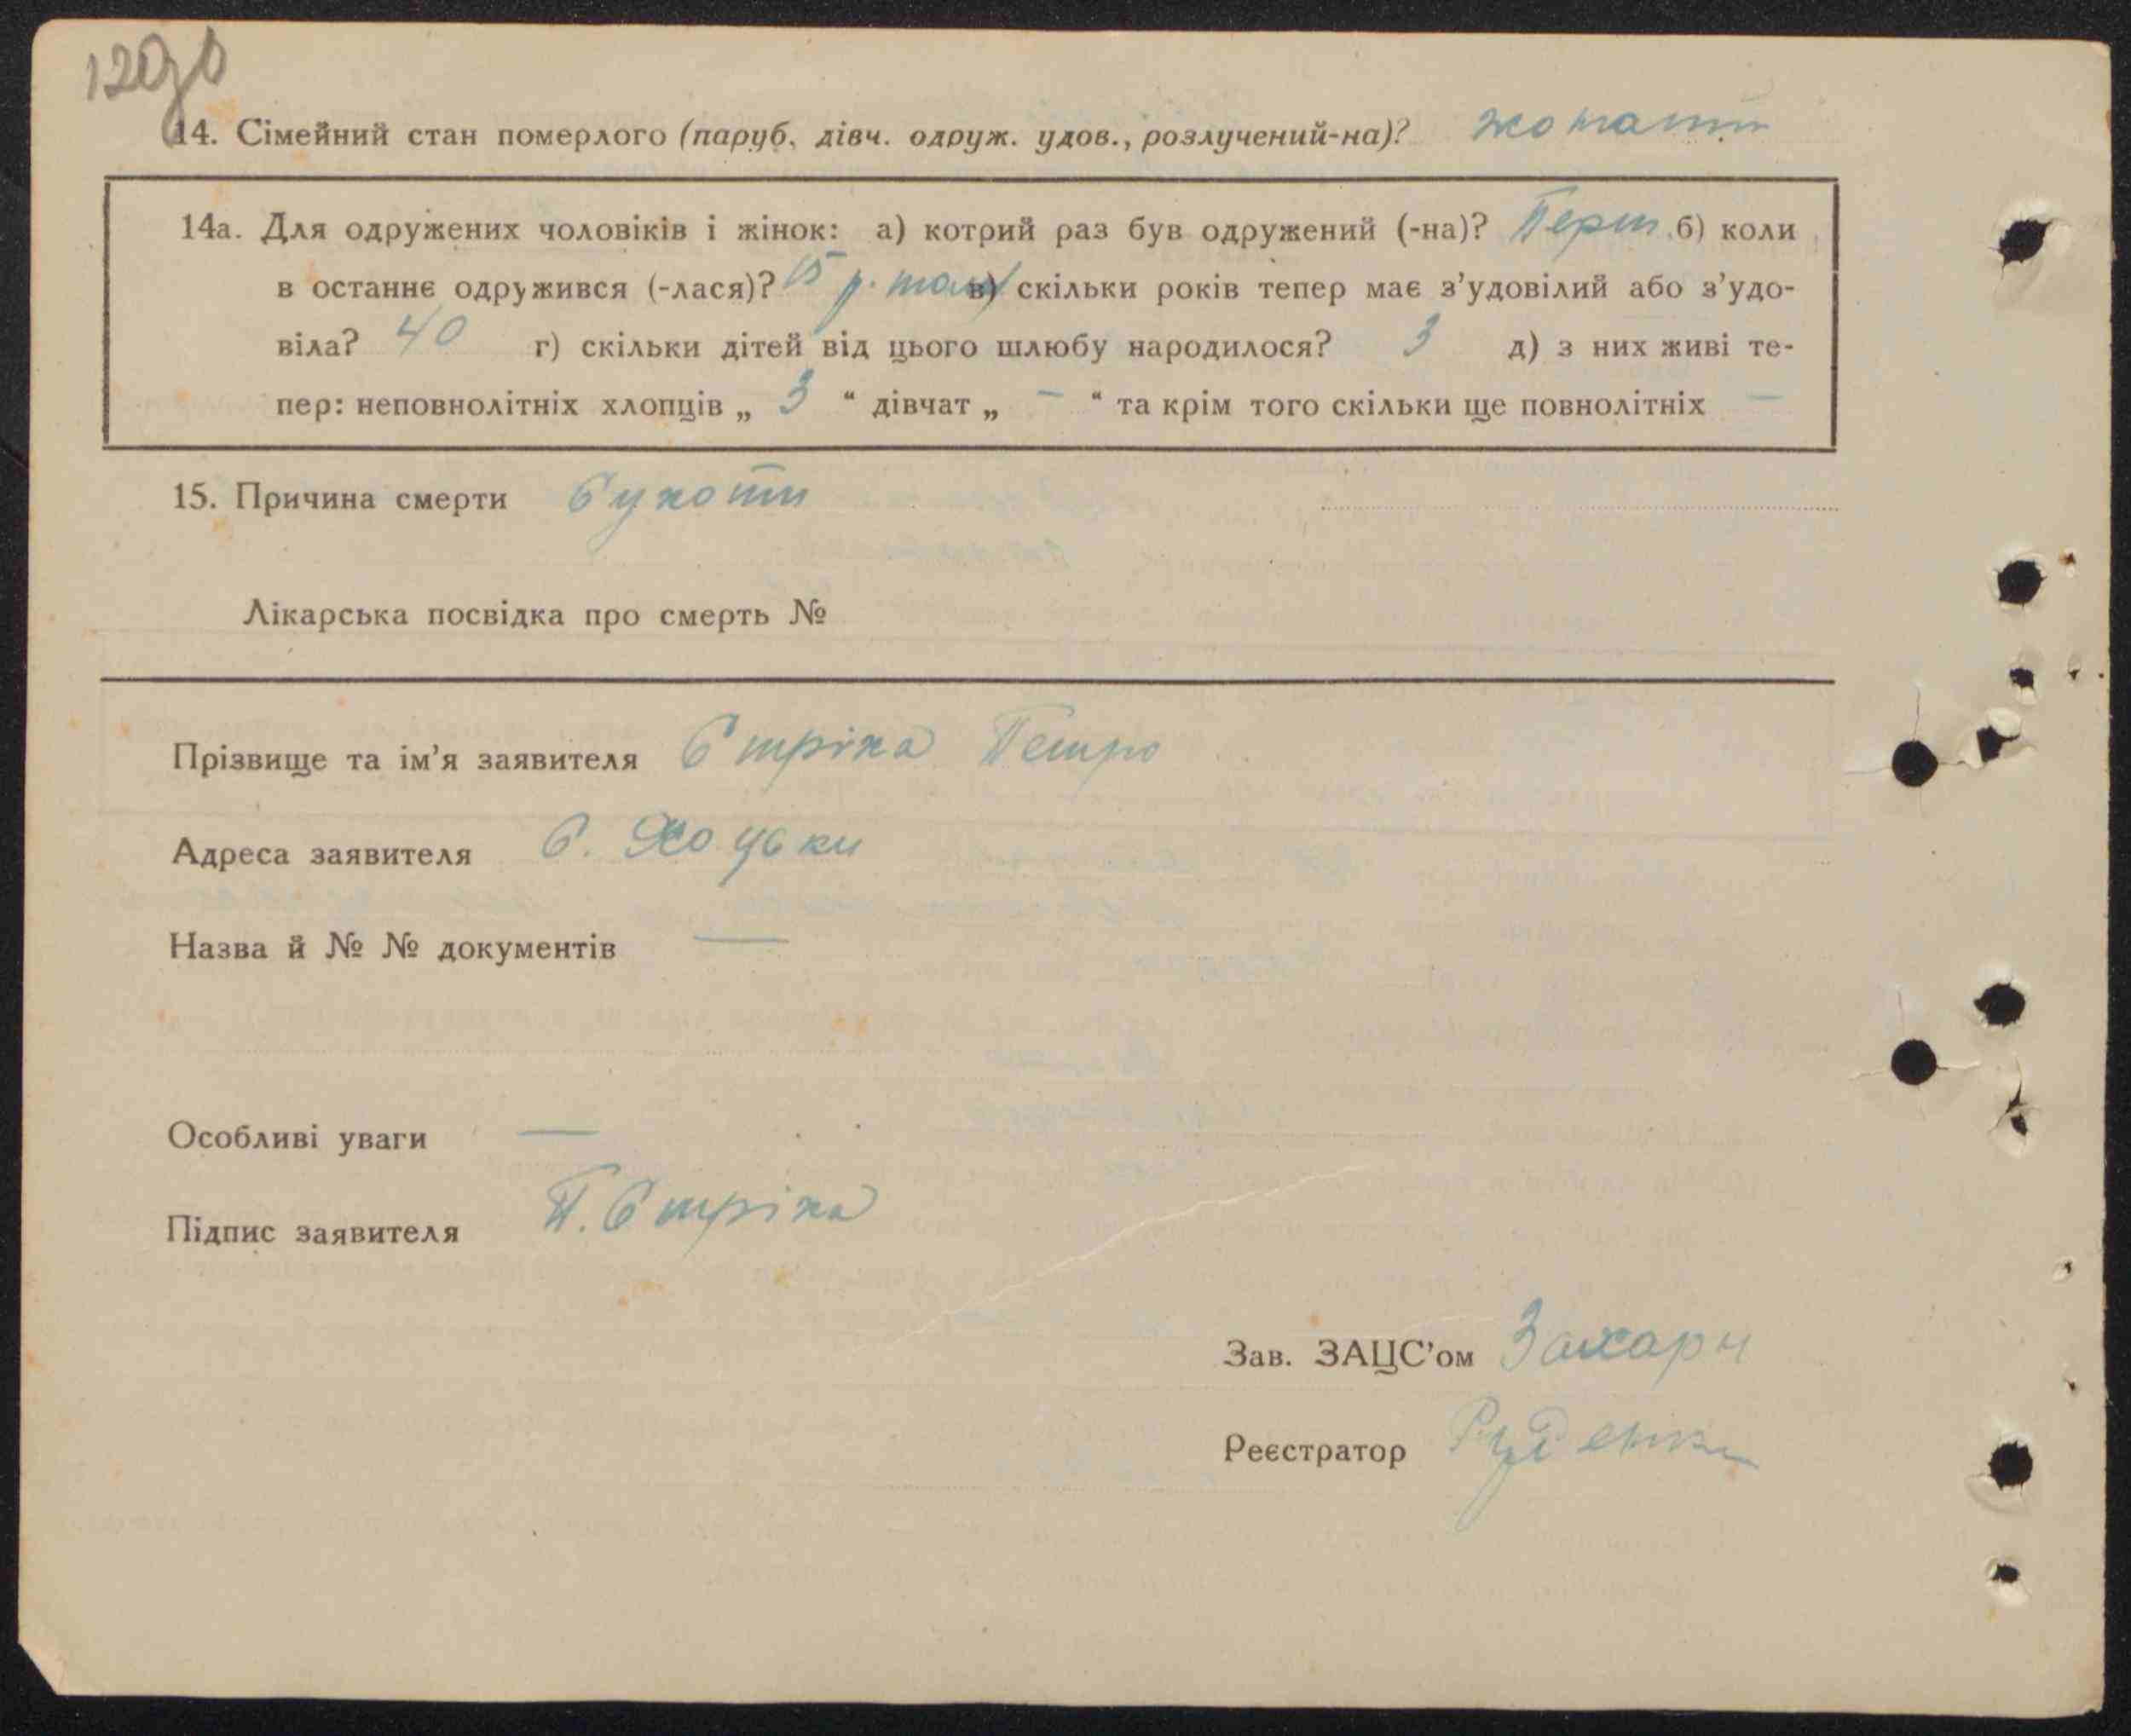 12зв
14. Сімейний стан померлого (паруб, дівч. одруж. удов., розлучений-на)? жонатий
14а. Для одружених чоловіків і жінок: а) котрий раз був одружений (-на)? Перш. б) коли
в останнє одружився (-лася)? 15 р. тому в) скільки років тепер має з'удовілий або з'удо-
віла? 40 г) скільки дітей від цього шлюбу народилося? 3 д) з них живі те-
пер: неповнолітніх хлопців „ 3 “ дівчат „ — “ та крім того скільки ще повнолітніх —
15. Причина смерти Сухоти
Лікарська посвідка про смерть №
Прізвище та ім'я заявителя Стріха Петро
Адреса заявителя С. Хоцьки
Назва й № № документів —
Особливі уваги —
Підпис заявителя П. Стріха
Зав. ЗАЦС'ом Захарч
Реєстратор Руденко